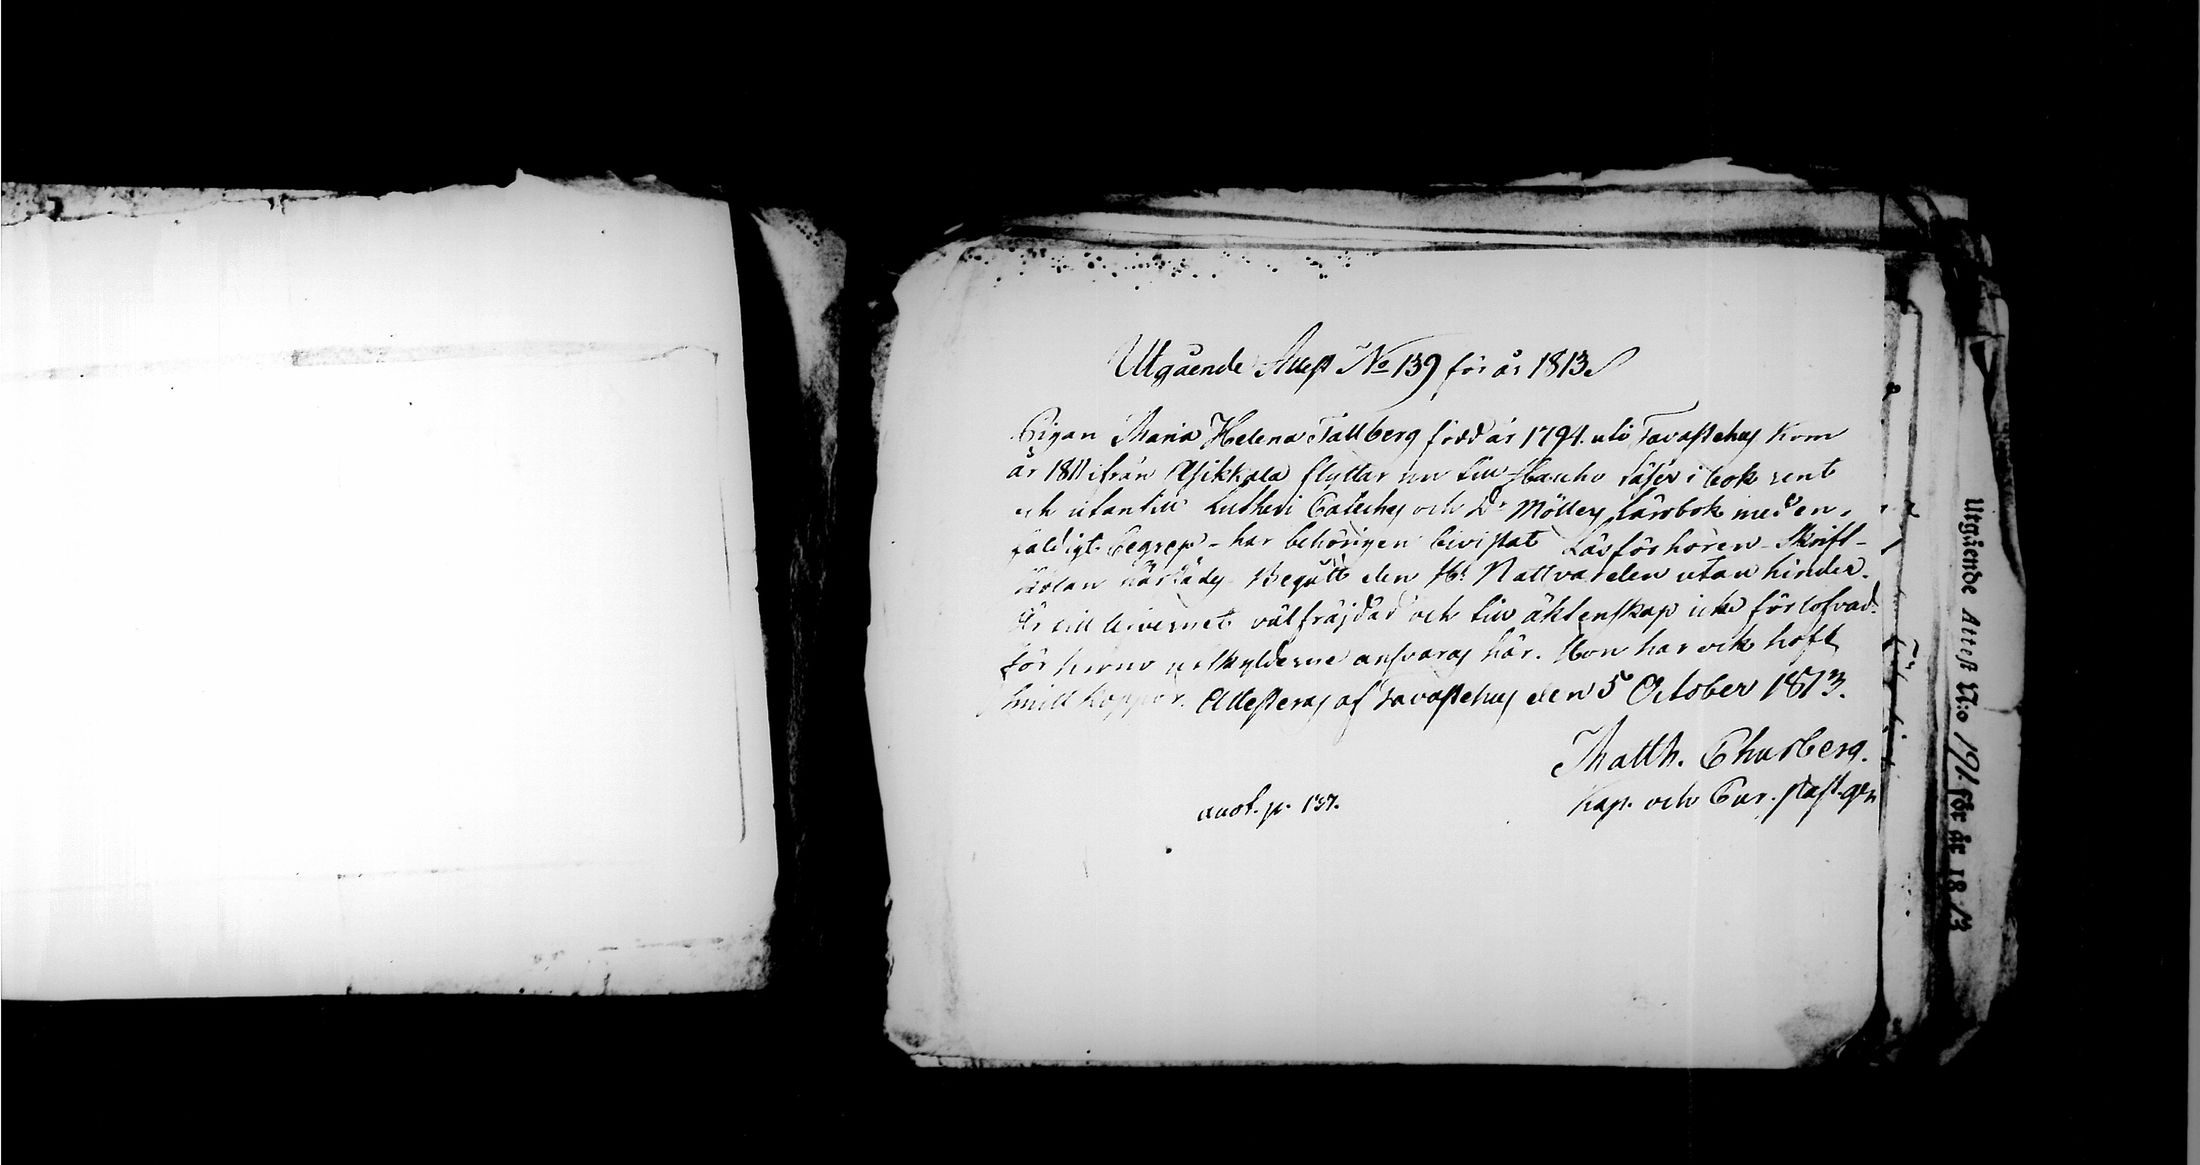 Utgående Attest No 139 för år 1813
Pigan Maria Helena Tallberg född år 1794 uti Tavastehus kom
år 1811 ifrån Asikkala flyttar nu till Hauho läser i bok rent
och utantill Lutheri Cateches och Dr Möllers Lärobok med en-
faldigt begrep - har behörigen bivistat Läsförhören - Skrift-
skolan Begått den Hr Nattvarden utan hinder.
Är till lefvernet välfräjdad och till äktenskap icke förlofvad.
för henne utskylderne ansvaras här. Hon har ock haft
koppor. Attesteras af Tavastehus den 5 October 1813.
Matth. Churberg.
Kap. och Cur. past. gen
anot. p. 137.
Utgående Attest N:o 191 för år 1813